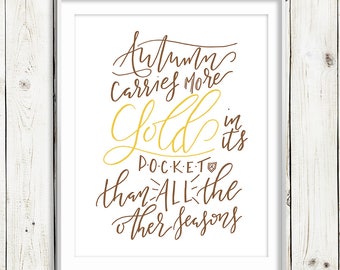 Autumn
CARRIES MORE
Gold in its
P·O·C·K·E·T
than ALL the
other seasons